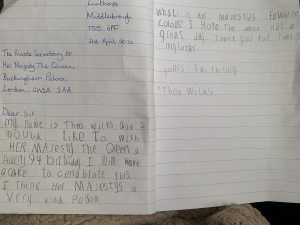 Linthorpe
Middlesbrough
TS5 6PF
21st April 2020
The Private Secretary to
Her Majesty The Queen
Buckingham Palace
London, SW1A 1AA
Dear Sir
My name is Theo Wilks and I
WOULD LIKE TO WISH
HER MAJESTY The QUEEN a
HAPPY 94 birthday I Will make
a cake to cendbrate this.
I Think Her MAJestys a
VERY kind Person
what is her majestys favourite
colour I Hope the Queen has a
great day. Thank you for reading
my letter.
yours faithfully
Theo Wilks